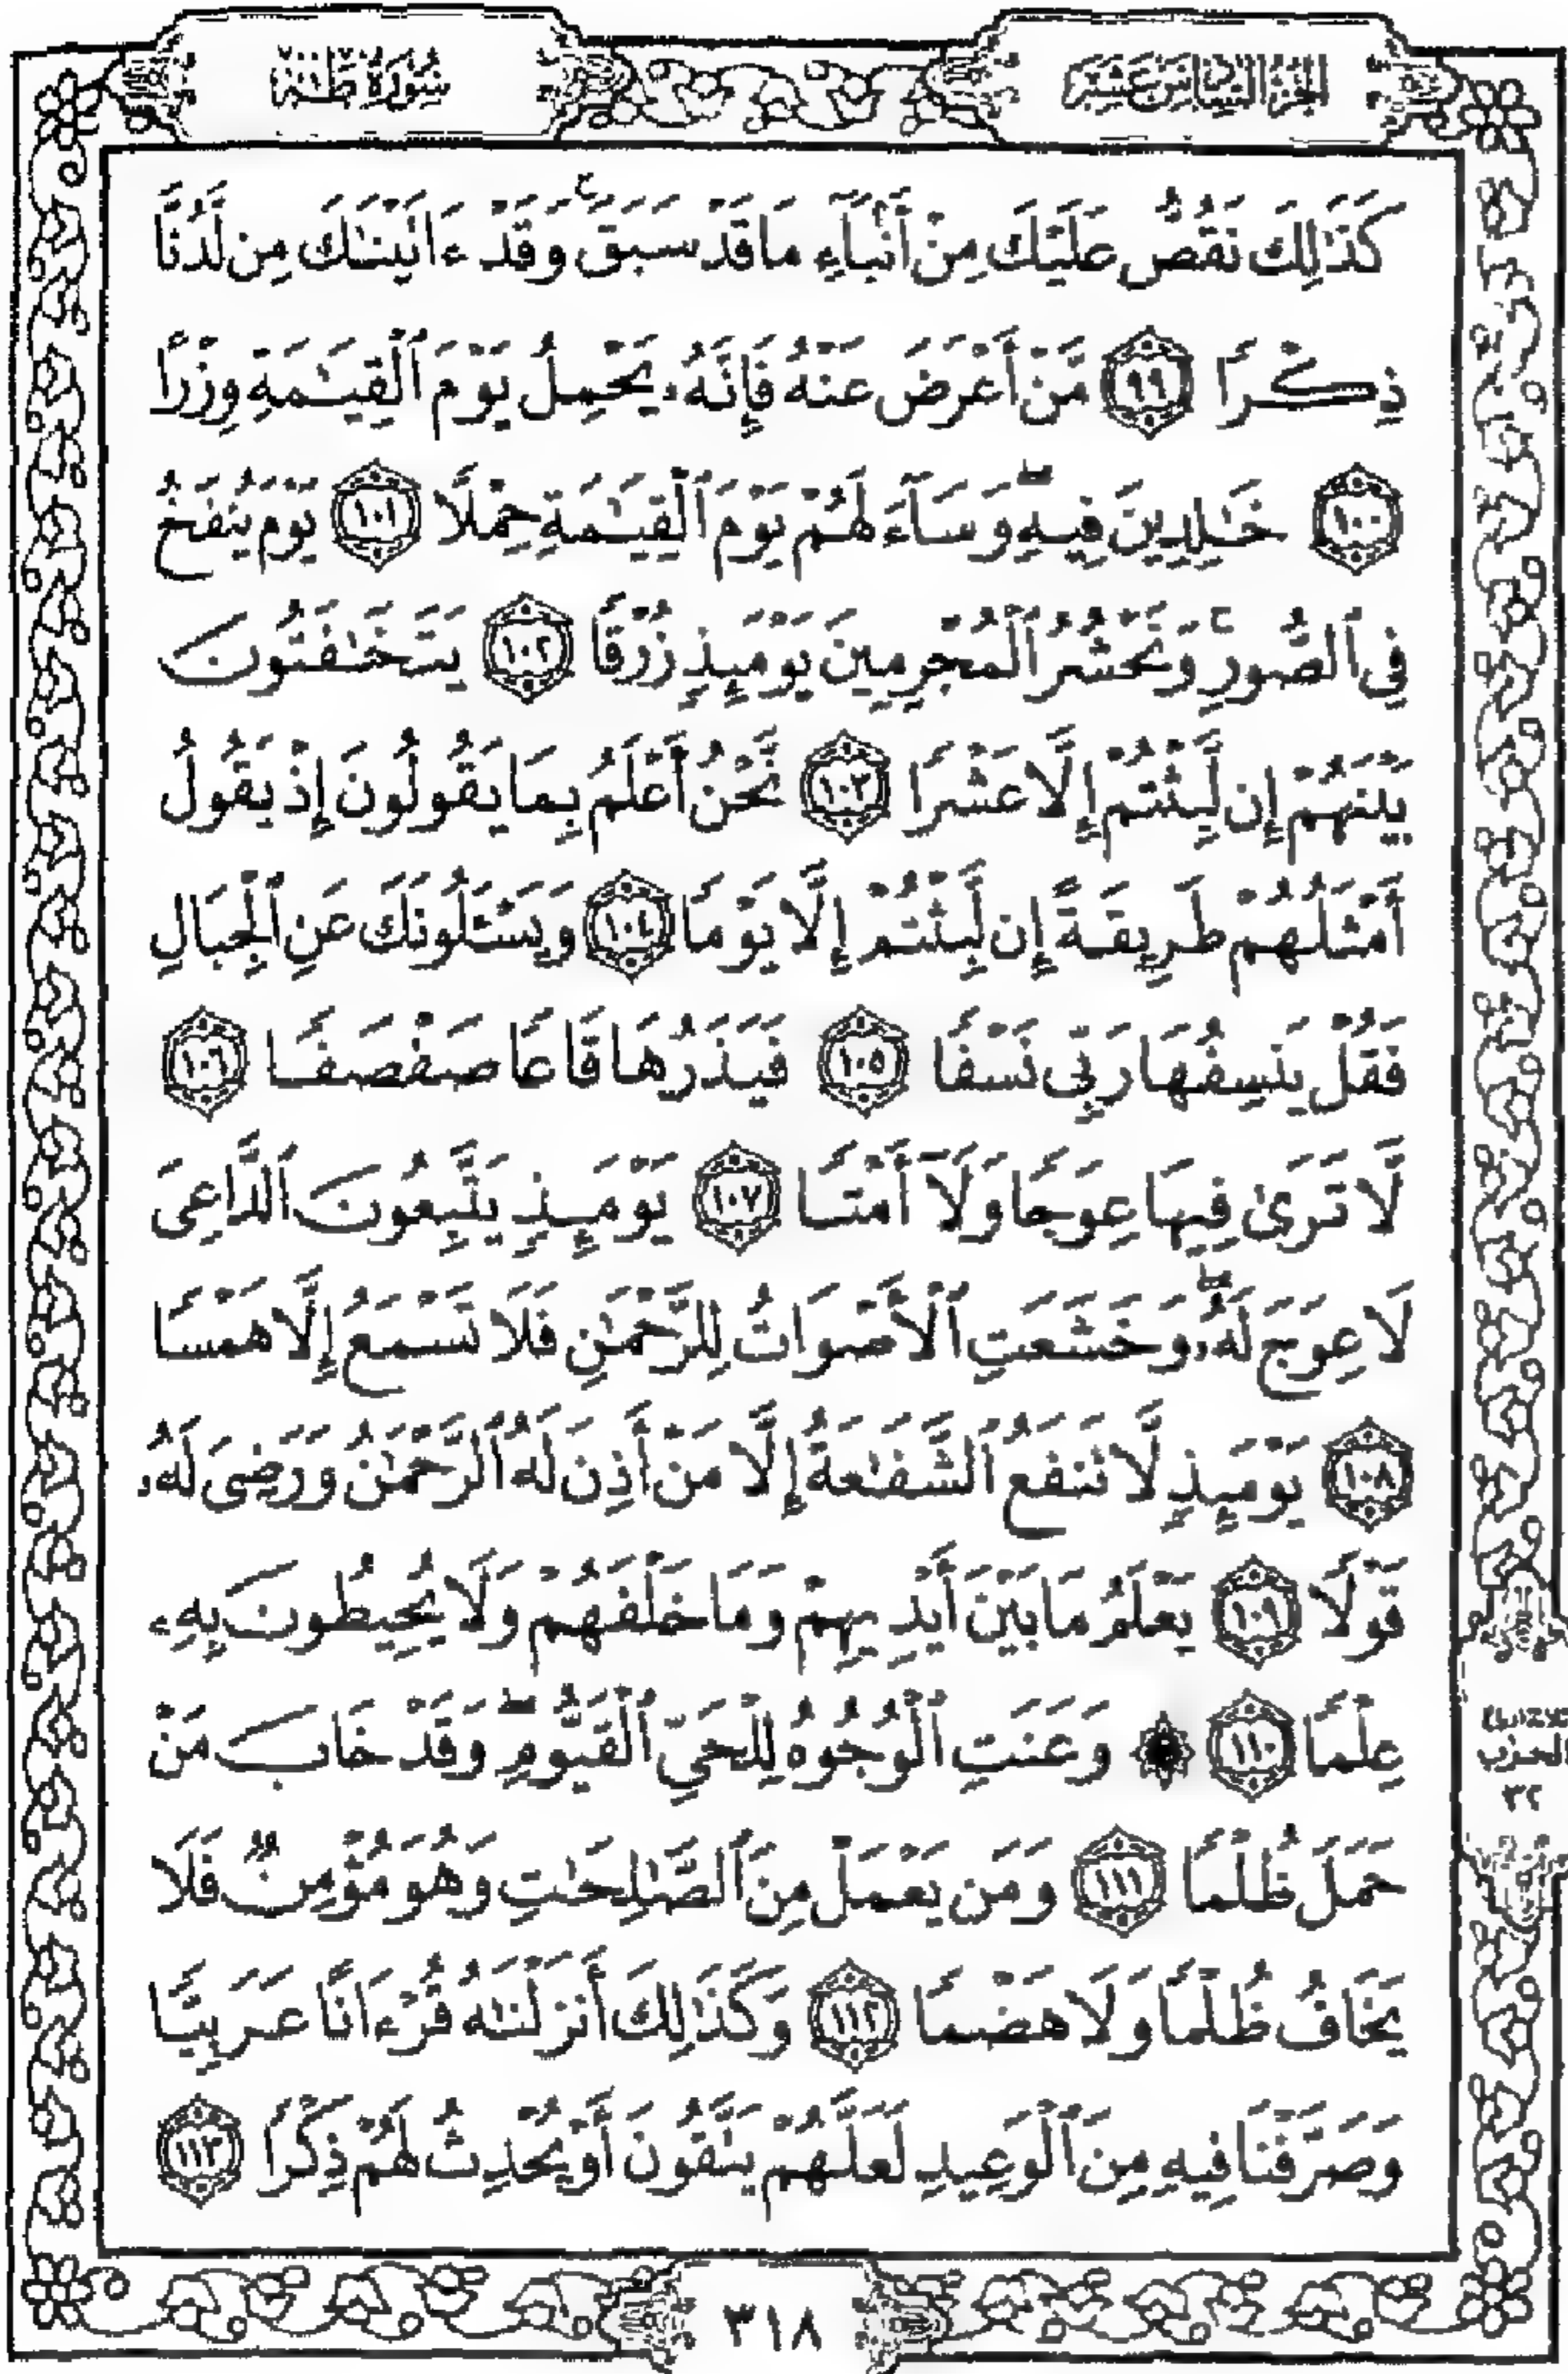 الجزء السادس عشر
سورة طه
كَذَٰلِكَ نَقُصُّ عَلَيْكَ مِنْ أَنۢبَآءِ مَا قَدْ سَبَقَ ۚ وَقَدْ ءَاتَيْنَٰكَ مِن لَّدُنَّا
ذِكْرًا ﴿٩٩﴾ مَّنْ أَعْرَضَ عَنْهُ فَإِنَّهُۥ يَحْمِلُ يَوْمَ ٱلْقِيَٰمَةِ وِزْرًا
﴿١٠٠﴾ خَٰلِدِينَ فِيهِ ۖ وَسَآءَ لَهُمْ يَوْمَ ٱلْقِيَٰمَةِ حِمْلًا ﴿١٠١﴾ يَوْمَ يُنفَخُ
فِى ٱلصُّورِ ۚ وَنَحْشُرُ ٱلْمُجْرِمِينَ يَوْمَئِذٍ زُرْقًا ﴿١٠٢﴾ يَتَخَٰفَتُونَ
بَيْنَهُمْ إِن لَّبِثْتُمْ إِلَّا عَشْرًا ﴿١٠٣﴾ نَّحْنُ أَعْلَمُ بِمَا يَقُولُونَ إِذْ يَقُولُ
أَمْثَلُهُمْ طَرِيقَةً إِن لَّبِثْتُمْ إِلَّا يَوْمًا ﴿١٠٤﴾ وَيَسْـَٔلُونَكَ عَنِ ٱلْجِبَالِ
فَقُلْ يَنسِفُهَا رَبِّى نَسْفًا ﴿١٠٥﴾ فَيَذَرُهَا قَاعًا صَفْصَفًا ﴿١٠٦﴾
لَّا تَرَىٰ فِيهَا عِوَجًا وَلَآ أَمْتًا ﴿١٠٧﴾ يَوْمَئِذٍ يَتَّبِعُونَ ٱلدَّاعِىَ
لَا عِوَجَ لَهُۥ ۖ وَخَشَعَتِ ٱلْأَصْوَاتُ لِلرَّحْمَٰنِ فَلَا تَسْمَعُ إِلَّا هَمْسًا
﴿١٠٨﴾ يَوْمَئِذٍ لَّا تَنفَعُ ٱلشَّفَٰعَةُ إِلَّا مَنْ أَذِنَ لَهُ ٱلرَّحْمَٰنُ وَرَضِىَ لَهُۥ
قَوْلًا ﴿١٠٩﴾ يَعْلَمُ مَا بَيْنَ أَيْدِيهِمْ وَمَا خَلْفَهُمْ وَلَا يُحِيطُونَ بِهِۦ
عِلْمًا ﴿١١٠﴾ ۞ وَعَنَتِ ٱلْوُجُوهُ لِلْحَىِّ ٱلْقَيُّومِ ۖ وَقَدْ خَابَ مَنْ
حَمَلَ ظُلْمًا ﴿١١١﴾ وَمَن يَعْمَلْ مِنَ ٱلصَّٰلِحَٰتِ وَهُوَ مُؤْمِنٌ فَلَا
يَخَافُ ظُلْمًا وَلَا هَضْمًا ﴿١١٢﴾ وَكَذَٰلِكَ أَنزَلْنَٰهُ قُرْءَانًا عَرَبِيًّا
وَصَرَّفْنَا فِيهِ مِنَ ٱلْوَعِيدِ لَعَلَّهُمْ يَتَّقُونَ أَوْ يُحْدِثُ لَهُمْ ذِكْرًا ﴿١١٣﴾
الحزب
٣٢
٣١٨